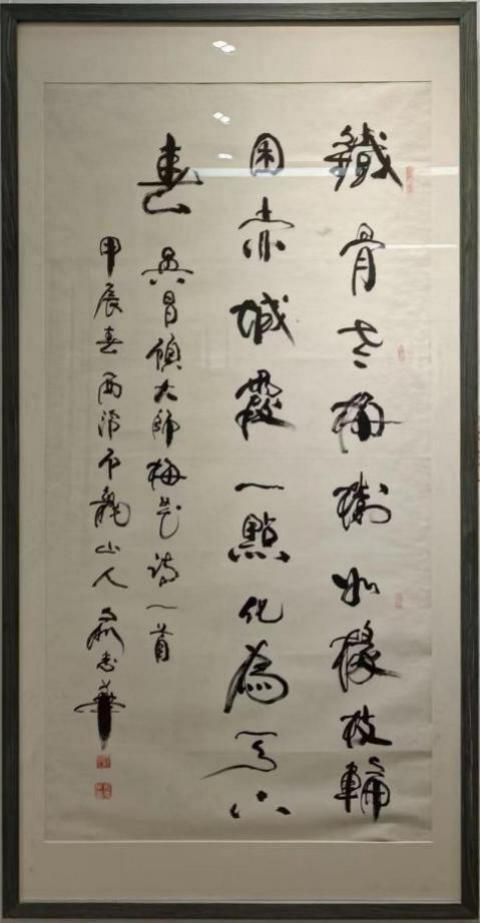 鐵骨老梅樹如椽枝輪
囷赤城霞一點化為天下
春 吳昌碩大師梅花詩一首
甲辰春西泠龍山人